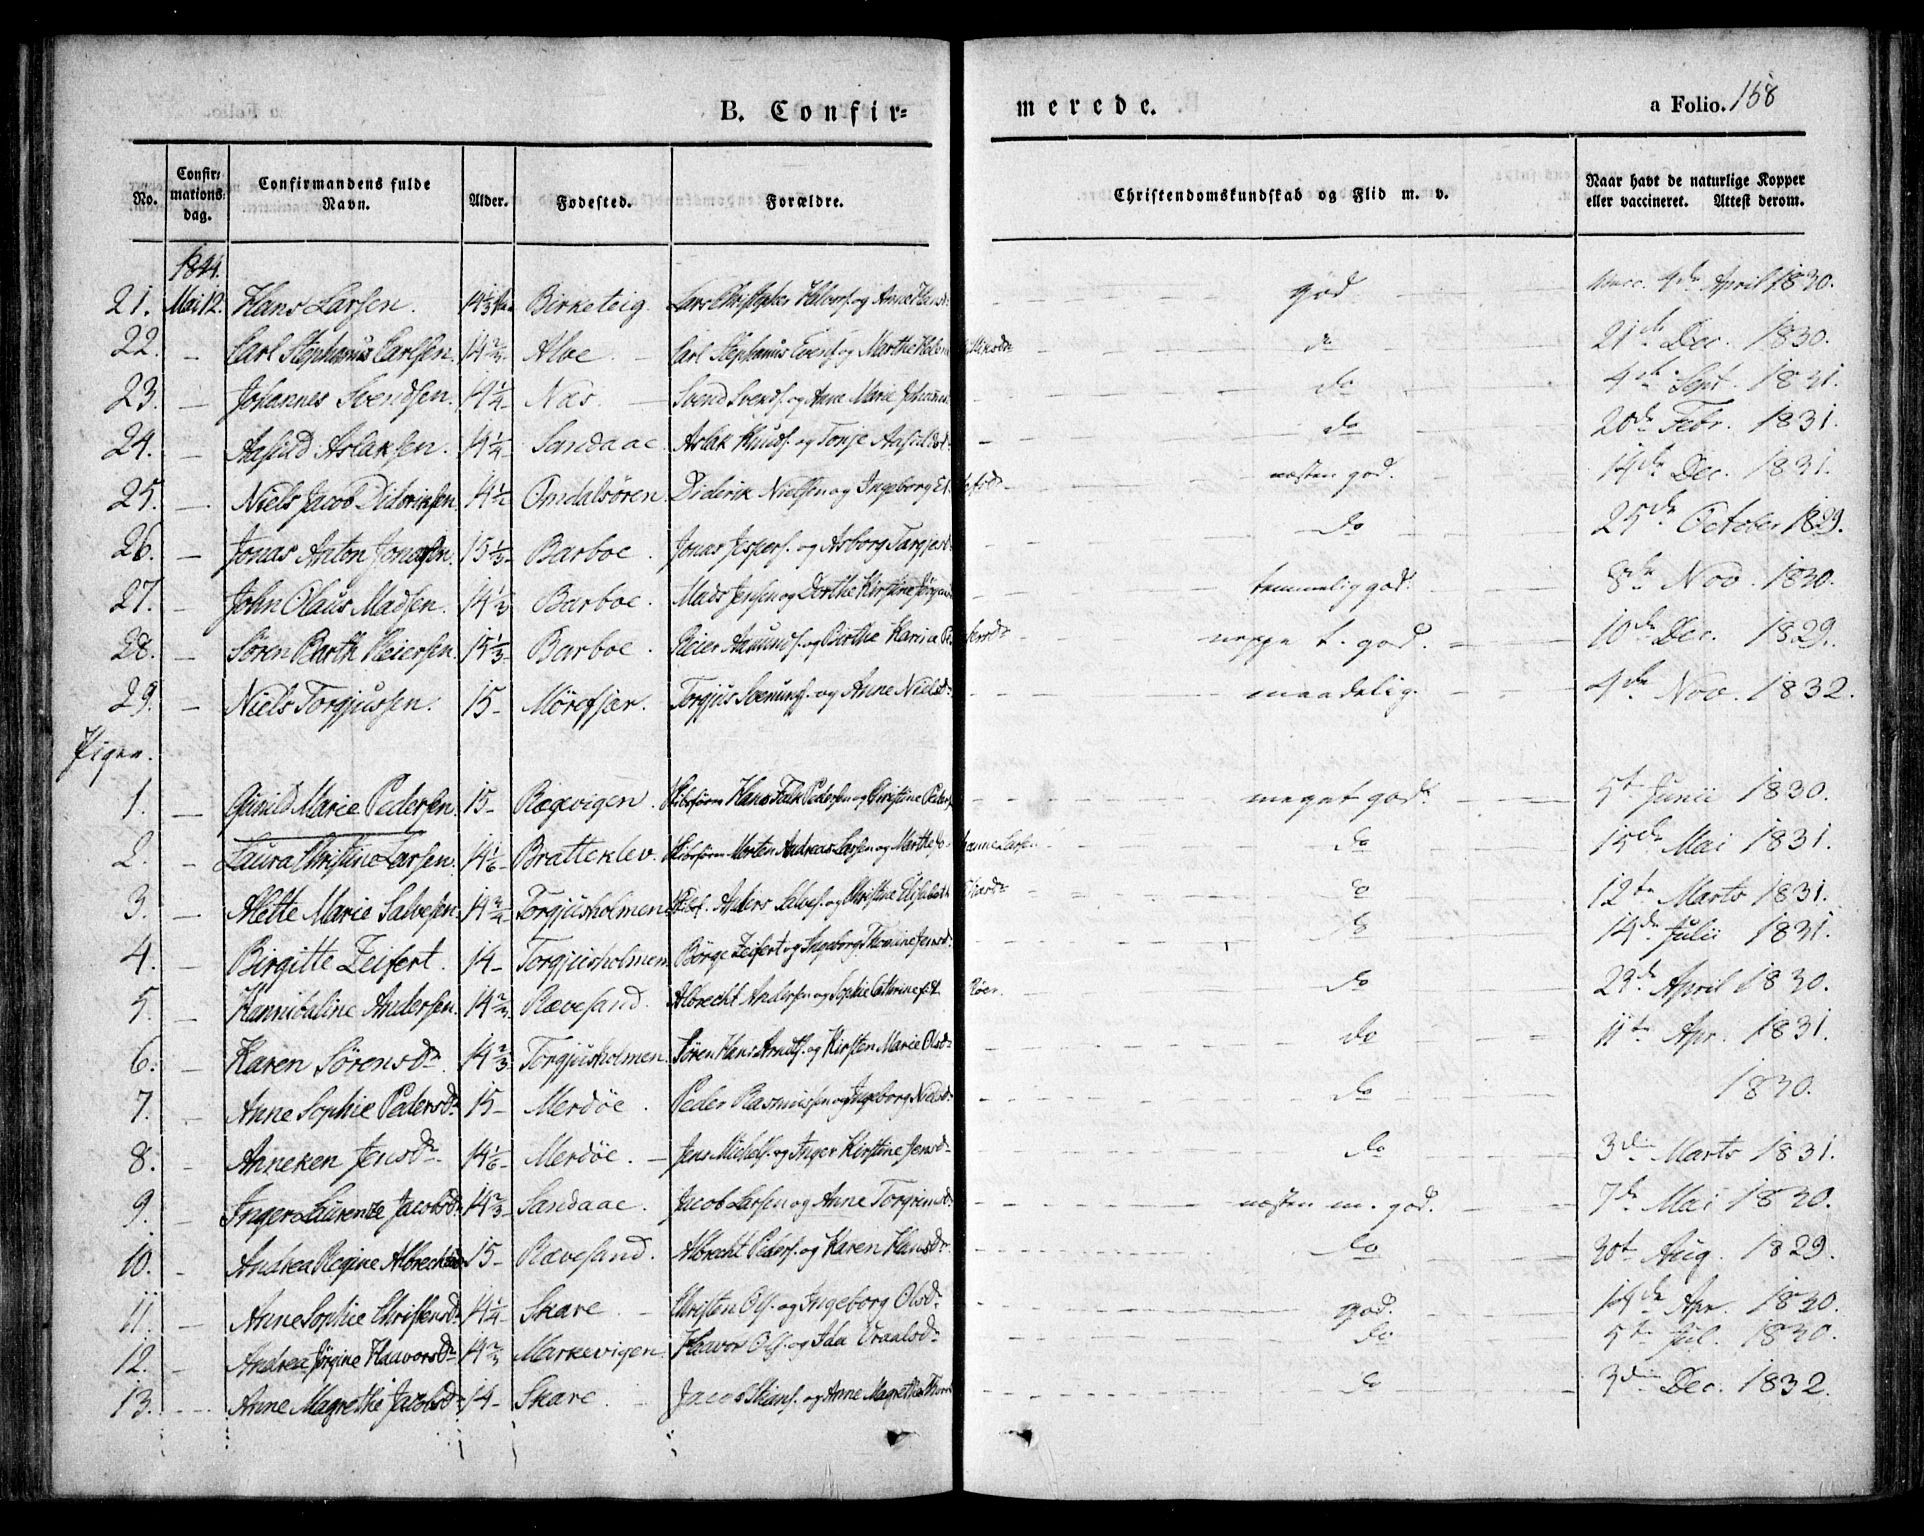 B. Confir= merede. a Folio. 158
No. Confirmations dag. Confirmandens fulde Navn. Alder. Fødested. Forældre. Christendomskundskab og Flid m. v. Naar havt de naturlige Kopper eller vaccineret. Attest derom.
1844.
21. Mai 12. Hans Larsen. 14 1/3 Birketeig. og Anne Hansd god 4de April 1830.
22. — Carl Stephanus Carlsen. 14 Alve. — Carl Stephanus Evens. og Marthe do 21de Dec. 1830.
23. — Johannes Svendsen. 14 1/4 Næs. — Svend Svends. og Anne Marie do 4de Sept. 1831.
24. — Aasuld Aslaksen. 14 1/4 Sandaae Aslak Knuds. og Tonje do 20de Febr. 1831.
25. — Niels Jacob Didriksen 14 1/2 Omdalsøren. Diderik Nielsen og Ingeborg næsten god. 14de Dec. 1831.
26. — Jonas Anton Jonassen. 15 1/3 Barboe. Jonas Jespers. og Asborg do 25de October 1829.
27. — John Olaus Madsen. 14 1/3 Barboe. Mads Jensen og Dorthe Kirstine temmelig god. 8de Nov. 1830.
28. — Søren Barth Reiersen. 15 1/3 Barboe. Reier Aamunds. og Birthe Karine neppe t. god. 10de Dec. 1829.
29. — Niels Torgjussen. 15 Mørefjær. Torgjus og Anne Nielsd. maadelig. 4de Nov. 1832.
Piger.
1. Gunild Marie Pedersen 15 Rægevigen. Skibsfører Hans Falk Pedersen og Christine Peders meget godt. 5te Junii 1830.
2. — Laura Christine Larsen. 14 1/6 Bratteklev. Skibsfører Morten Andreas Larsen og Marthe Johanne Larsen do 15de Mai 1831.
3. — Alette Marie Salvesen 14 Torgjusholmen Anders Salves. og Christine Elisabeth do 12te Marts 1831.
4. — Birgitte Zeifert. 14 Torgjusholmen Børge Zeifert og Ingeborg Thomine Jensd. do 14de Julii 1831.
5. — Hannibaline Andersen. 14 2/3 Rævesand. Albrecht Andersen og Sophie Cathrine do 23de April 1830.
6. — Karen Sørensdr. 14 2/3 Torgjusholmen. Søren Hans Arnuts. og Kirsten Marie Olsdr do 11te Apr. 1831.
7. — Anne Sophie Pedersdr 15 Merdøe. Peder Rasmussen og Ingeborg Nielsdr do 1830.
8. — Anneken Jensdr. 14 1/6 Merdøe. — Jens Michels. og Inger Kirstine Jensdr do 3die Marts 1831.
9. — Inger Laurentze Jacobsdr 14 2/3 Sandaae. Jacob Larsen og Anne Torgrimsd. næsten m. god. 7de Mai 1830.
10. — Andrea Regine Albrechtsdr 15 Rævesand. Albrecht Peders. og Karen Hansdr do 30te Aug. 1829.
11. — Anne Sophie Christensdr 14 1/4 Skare. — Christen Ols. og Ingeborg Olsdr god. 14de Apr. 1830.
12. — Andrea Jørgine Haavorsdr 14 2/3 Markevigen. Haavor Ols. og Ida do 5te Jul. 1830.
13. — Anne Magrethe Jacobsdr 14 Skare. — Jacob og Anne Magrethe do 3die Dec. 1832.